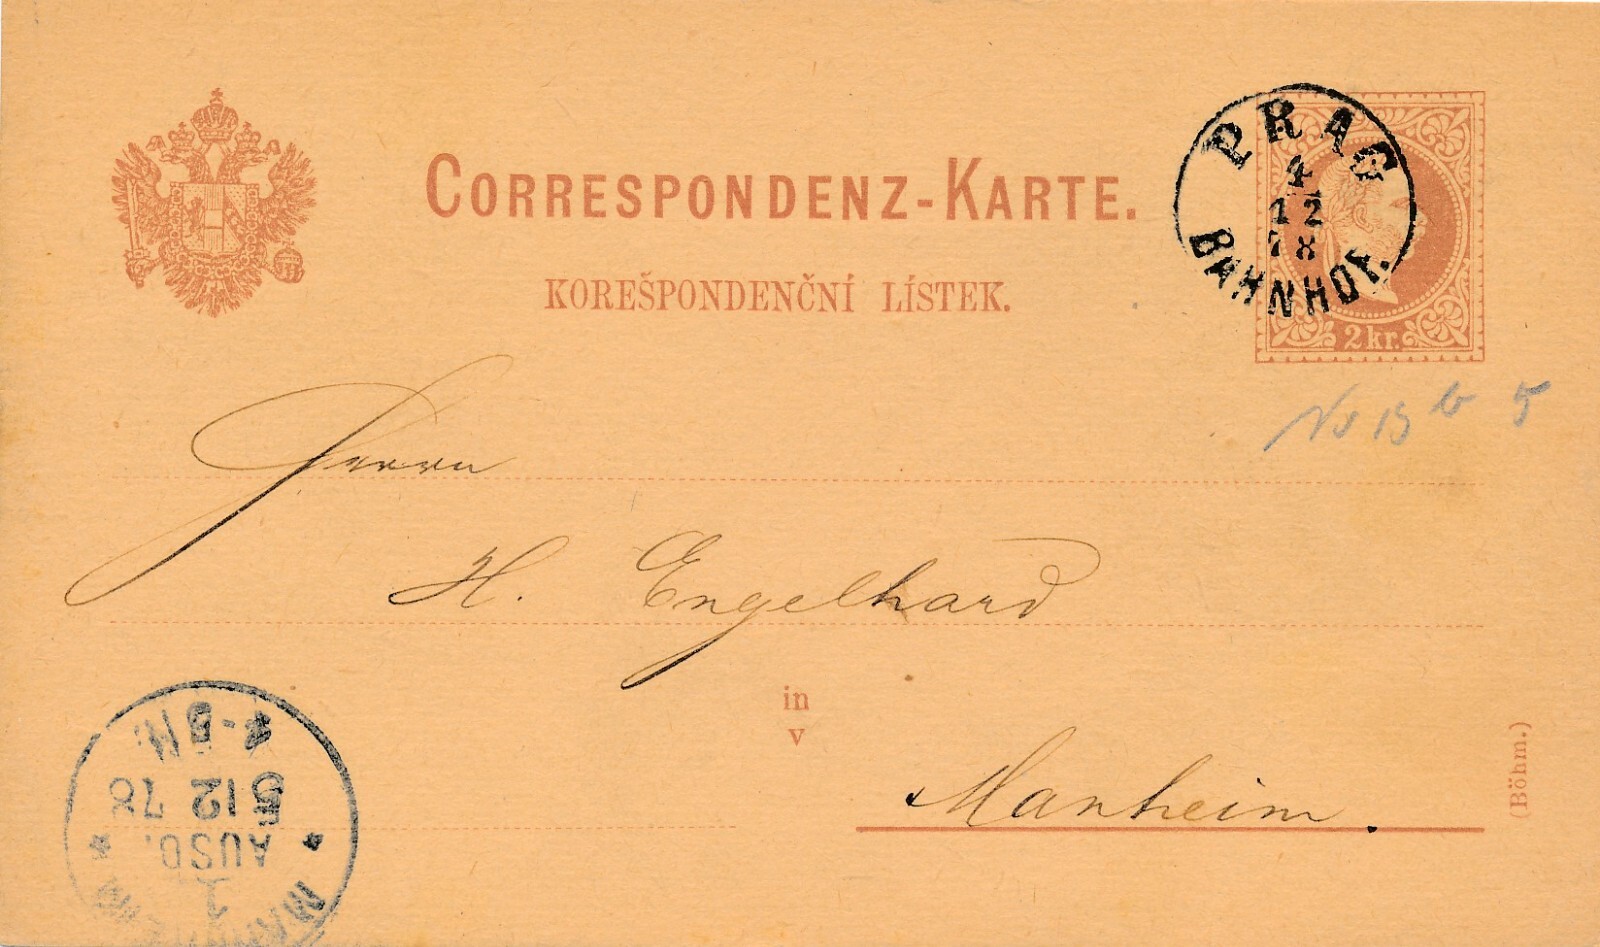 CORRESPONDENZ-KARTE.
KOREŠPONDENČNÍ LÍSTEK.
PRAG
4
12
78
BAHNHOF.
2 kr.
No 13 b 5
Herrn
H. Engelhard
in
v
Manheim.
(Böhm.)
4-5 N.
5 12 78
AUSG.
1